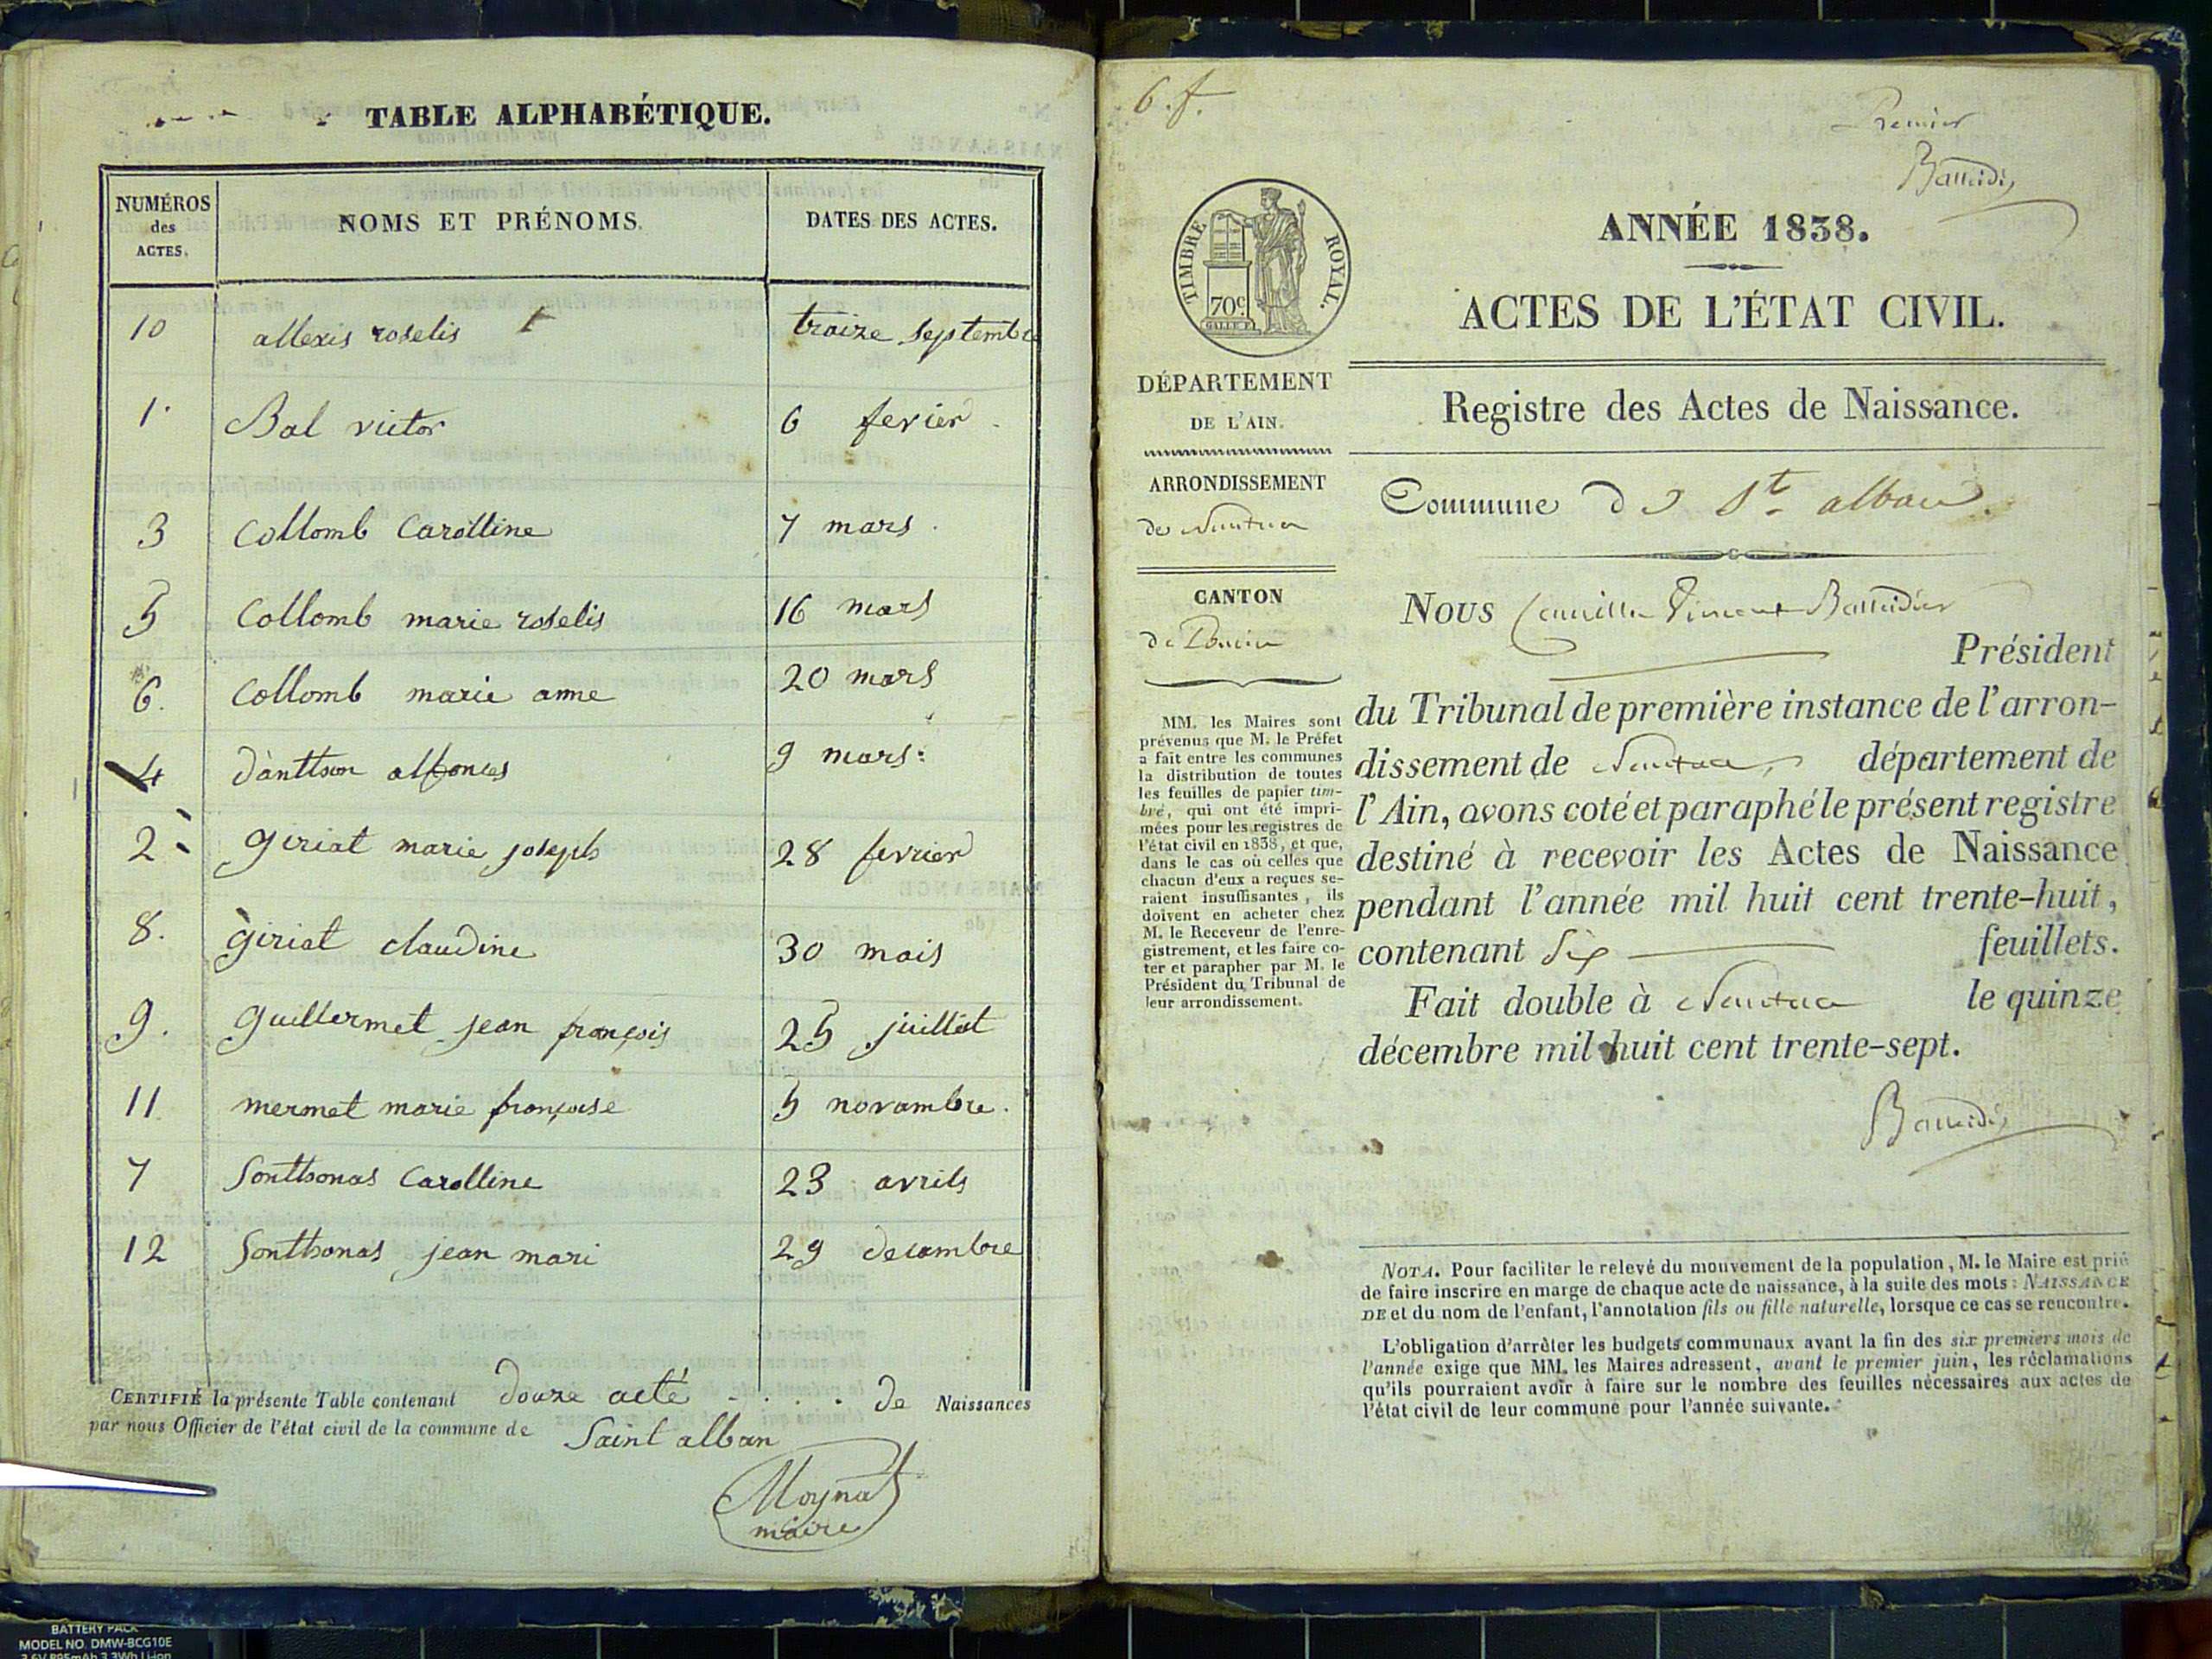 TABLE ALPHABÉTIQUE.
NUMÉROS des ACTES. NOMS ET PRÉNOMS. DATES DES ACTES.
10 allexis roselis traize septembre
1 Bal victor 6 fevier
3 Collomb Carolline 7 mars
5 Collomb marie roselis 16 mars
6. Collomb marie anne 20 mars
4 Dantthon alfonces 9 mars
2 giriat marie joseph 28 fevrier
8. giriat claudine 30 mais
9. guillermet jean françois 25 juillet
11 mermet marie françoise 5 novambre.
7 Sonthonas Carolline 23 avrils
12 Sonthonas jean mari 29 decambre
CERTIFIÉ la présente Table contenant douze acté de Naissances
par nous Officier de l'état civil de la commune de Saint alban
Moynat
maire
6. f.
Premier
TIMBRE ROYAL.
70c
ANNÉE 1838.
ACTES DE L'ÉTAT CIVIL.
Registre des Actes de Naissance.
Commune de St alban.
DÉPARTEMENT
DE L'AIN.
ARRONDISSEMENT
de Nantua
CANTON
de Poncin
MM. les Maires sont
prévenus que M. le Préfet
a fait entre les communes
la distribution de toutes
les feuilles de papier tim-
bré, qui ont été impri-
mées pour les registres de
l'état civil en 1838, et que,
dans le cas où celles que
chacun d'eux a reçues se-
raient insuffisantes, ils
doivent en acheter chez
M. le Receveur de l'enre-
gistrement, et les faire co-
ter et parapher par M. le
Président du Tribunal de
leur arrondissement.
Nous Camille Vincent
Président
du Tribunal de première instance de l'arron-
dissement de Nantua, département de
l'Ain, avons coté et paraphé le présent registre
destiné à recevoir les Actes de Naissance
pendant l'année mil huit cent trente-huit,
contenant Six feuillets.
Fait double à Nantua le quinze
décembre mil huit cent trente-sept.
NOTA. Pour faciliter le relevé du mouvement de la population, M. le Maire est prié
de faire inscrire en marge de chaque acte de naissance, à la suite des mots : NAISSANCE
DE et du nom de l'enfant, l'annotation fils ou fille naturelle, lorsque ce cas se rencontre.
L'obligation d'arrêter les budgets communaux avant la fin des six premiers mois de
l'année exige que MM. les Maires adressent, avant le premier juin, les réclamations
qu'ils pourraient avoir à faire sur le nombre des feuilles nécessaires aux actes de
l'état civil de leur commune pour l'année suivante.
BATTERY PACK
MODEL NO. DMW-BCG10E